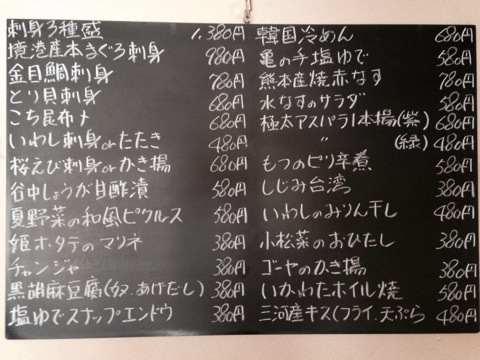 刺身3種盛 1,380円
境港産本まぐろ刺身 980円
金目鯛刺身 780円
とり貝刺身 680円
こち昆布〆 680円
いわし刺身orたたき 480円
桜えび刺身orかき揚 680円
谷中しょうが甘酢漬 580円
夏野菜の和風ピクルス 580円
姫ホタテのマリネ 380円
チャンジャ 380円
黒胡麻豆腐(奴.あげだし) 380円
塩ゆでスナップエンドウ 380円
韓国冷めん 680円
亀の手塩ゆで 580円
熊本産焼赤なす 780円
水なすのサラダ 580円
極太アスパラ1本揚(紫) 680円
(緑) 480円
もつのピリ辛煮 580円
しじみ台湾 380円
いわしのみりん干し 480円
小松菜のおひたし 380円
ゴーヤのかき揚 380円
いかわたホイル焼 580円
三河産キス(フライ.天ぷら 480円